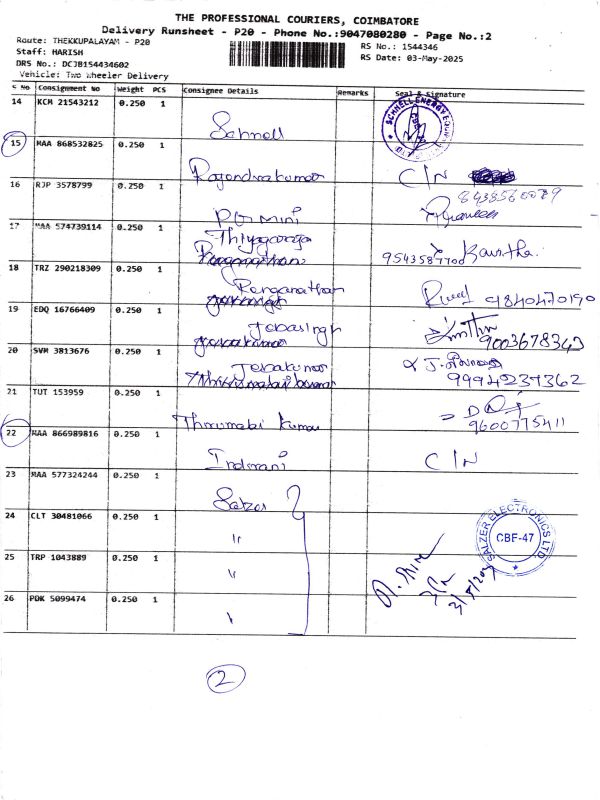 THE PROFESSIONAL COURIERS, COIMBATORE
Delivery Runsheet - P20 - Phone No.:9047080280 - Page No.:2
Route: THEKKUPALAYAM - P20
Staff: HARISH
DRS No.: DCJB154434602
Vehicle: Two Wheeler Delivery
RS No.: 1544346
RS Date: 03-May-2025
S No Consignment No Weight PCS Consignee Details Remarks Seal & Signature
14 KCM 21543212 0.250 1 Schnell SCHNELL ENERGY
15 MAA 868532825 0.250 1 Rajendrakumar C/N
16 RJP 3578799 0.250 1
17 MAA 574739114 0.250 1 Thiyagaraja
18 TRZ 290218309 0.250 1 Renganathan 9840470190
19 EDQ 16766409 0.250 1 Jebasingh 9003678343
20 SVM 3813676 0.250 1 Jebakumar 9994237362
21 TUT 153959 0.250 1 Thirumalai Kumar 9600775411
22 MAA 866989816 0.250 1 Indrani C/N
23 MAA 577324244 0.250 1 Salzer
24 CLT 30481066 0.250 1 "
25 TRP 1043889 0.250 1 "
26 PDK 5099474 0.250 1
SALZER ELECTRONICS LTD.
CBF-47
2